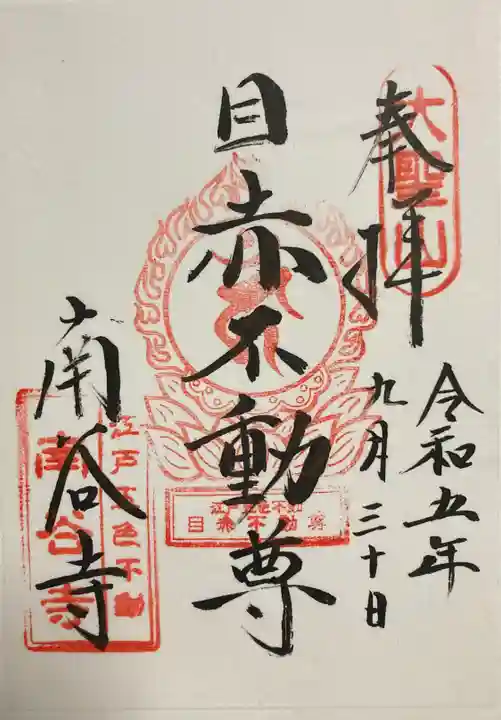 大聖山
奉拝
令和五年
九月三十日
目赤不動尊
江戸五色不動
目赤不動尊
南谷寺
江戸五色不動
南谷寺